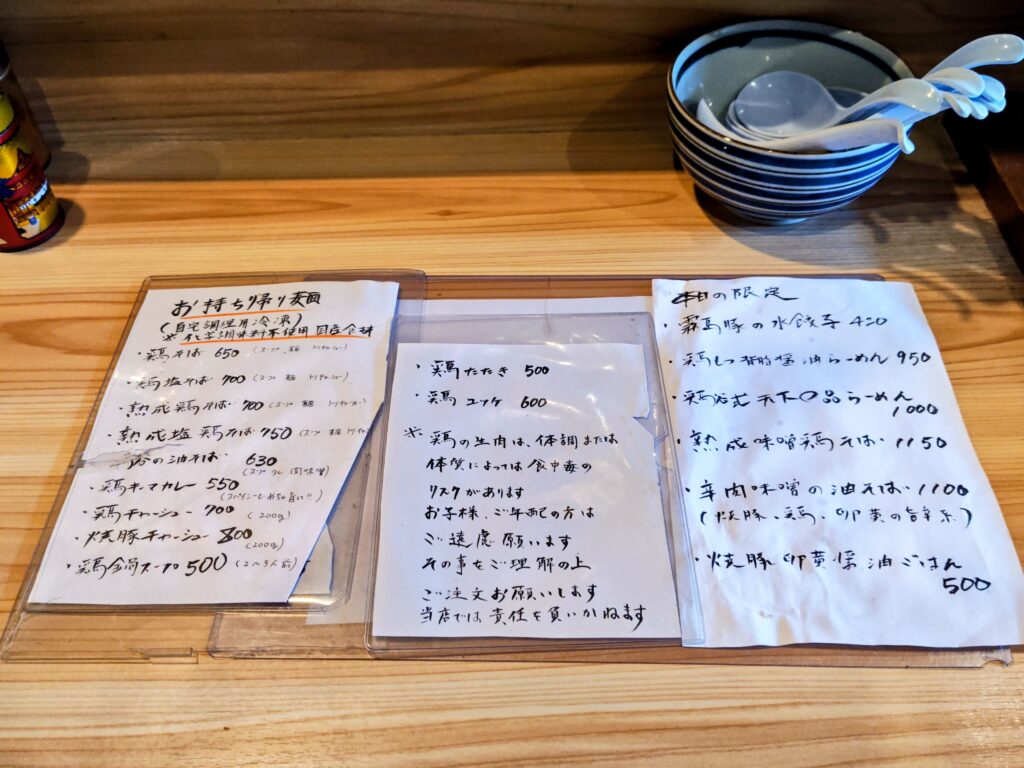 お持ち帰り麺
(自宅調理用冷凍)
※化学調味料不使用国産食材
・鶏そば 650 (スープ 麺 トリチャーシュー)
・鶏塩そば 700 (スープ 麺 トリチャーシュー)
・熟成鶏そば 700 (スープ 麺 トリチャーシュー)
・熟成塩鶏そば 750 (スープ 麺
の油そば 630
・鶏キーマカレー 550
(スパイシーでめちゃ旨い!!)
・鶏チャーシュー 700 (200g)
・焼豚チャーシュー 800
(200g)
・鶏 スープ 500 (2〜3人前)
・鶏たたき 500
・鶏ユッケ 600
※ 鶏の生肉は、体調または
体質によっては食中毒の
リスクがあります
お子様、ご年配の方は
ご遠慮願います
その事をご理解の上
ご注文お願いします
当店では責任を負いかねます
本日の限定
・霧島豚の水餃子 420
・鶏もつ背脂醤油らーめん 950
・鶏 式天下〇品らーめん
1000
・熟成味噌鶏そば 1150
・辛肉味噌の油そば 1100
(焼豚、鶏、卵黄の旨辛系)
・焼豚卵黄醤油ごはん
500